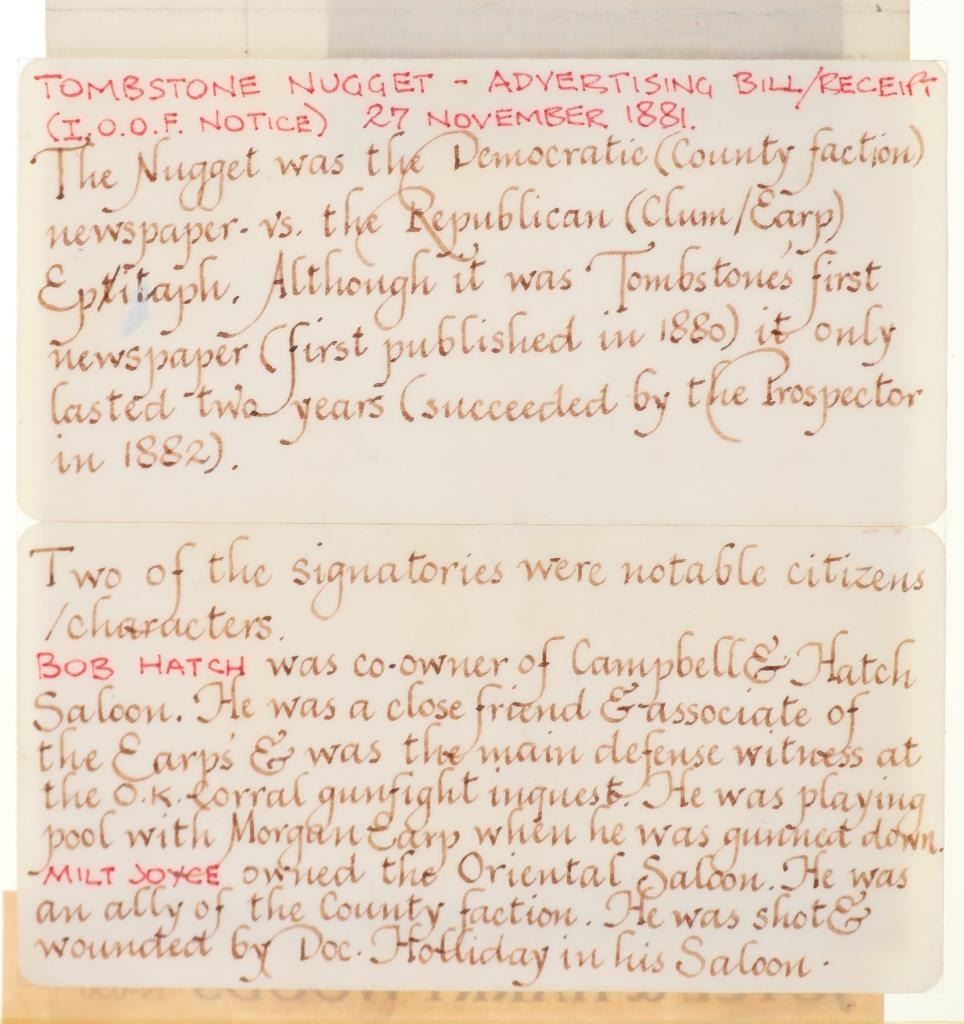 TOMBSTONE NUGGET - ADVERTISING BILL/RECEIPT
(I.O.O.F. NOTICE) 27 NOVEMBER 1881.
The Nugget was the Democratic (County faction)
newspaper - vs. the Republican (Clum/Earp)
Epitaph. Although it was Tombstone's first
newspaper (first published in 1880) it only
lasted two years (succeeded by the Prospector
in 1882).
Two of the signatories were notable citizens
/characters.
BOB HATCH was co-owner of Campbell & Hatch
Saloon. He was a close friend & associate of
the Earps' & was the main defense witness at
the O.K. Corral gunfight inquest. He was playing
pool with Morgan Earp when he was gunned down.
MILT JOYCE owned the Oriental Saloon. He was
an ally of the County faction. He was shot &
wounded by Doc. Holliday in his Saloon.